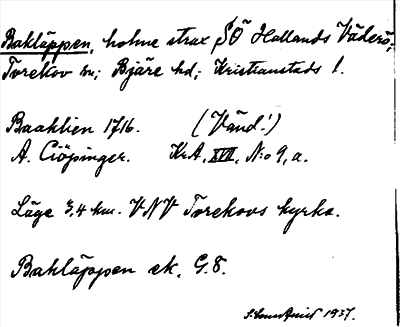 Bakläppen, holme strax SÖ Hallands Väderö;
Torekov sn; Bjäre hd; Kristianstads l.
Baaklien 1716. (Vänd!)
A. Ciöpinger. KrA, XVII, N:o 9, a.
Läge 3,4 km. VNV Torekovs kyrka.
Bakläppen ek. G.8.
1937.